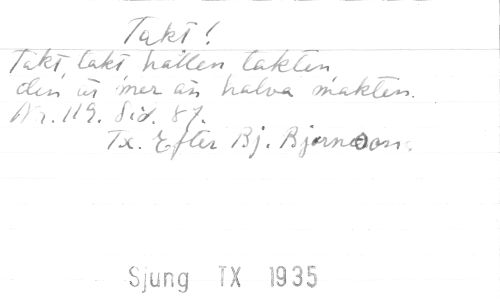 Takt!
Takt, takt, hållen takten
den är mer än halva makten.
Nr. 119. Sid. 87.
Tx. Efter Bj. Bjørnson.
Sjung TX 1935